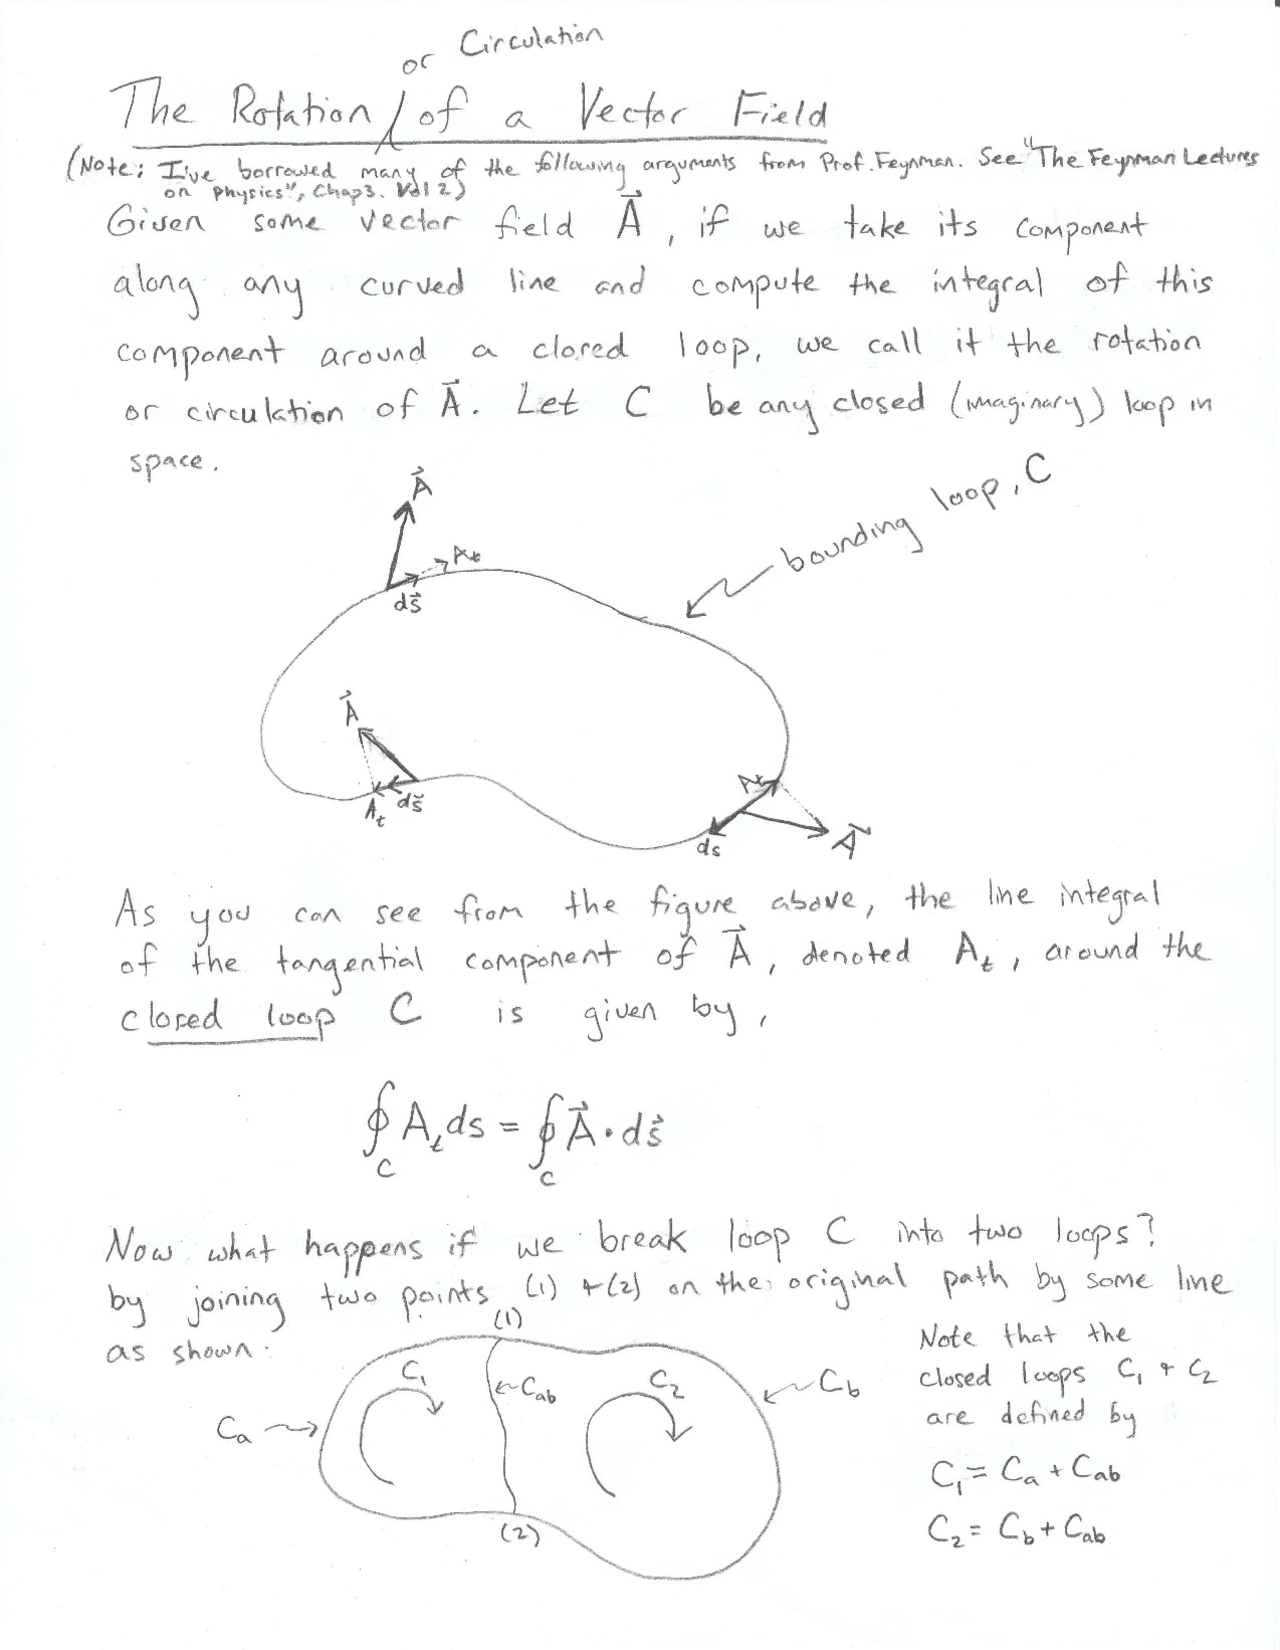 or Circulation
The Rotation of a Vector Field
(Note: I've borrowed many of the following arguments from Prof. Feynman. See "The Feynman Lectures
on Physics", Chap 3. Vol 2)
Given some vector field A⃗, if we take its component
along any curved line and compute the integral of this
component around a closed loop, we call it the rotation
or circulation of A⃗. Let C be any closed (imaginary) loop in
space.
A⃗
bounding loop, C
A_t
ds⃗
A⃗
A_t
ds⃗
A_t
ds
A⃗
As you can see from the figure above, the line integral
of the tangential component of A⃗, denoted A_t, around the
closed loop C is given by,
∮_C A_t ds = ∮_C A⃗ · ds⃗
Now what happens if we break loop C into two loops?
by joining two points (1) + (2) on the original path by some line
as shown:
(1)
C₁
C_ab
C₂
C_b
C_a
(2)
Note that the
closed loops C₁ + C₂
are defined by
C₁ = C_a + C_ab
C₂ = C_b + C_ab